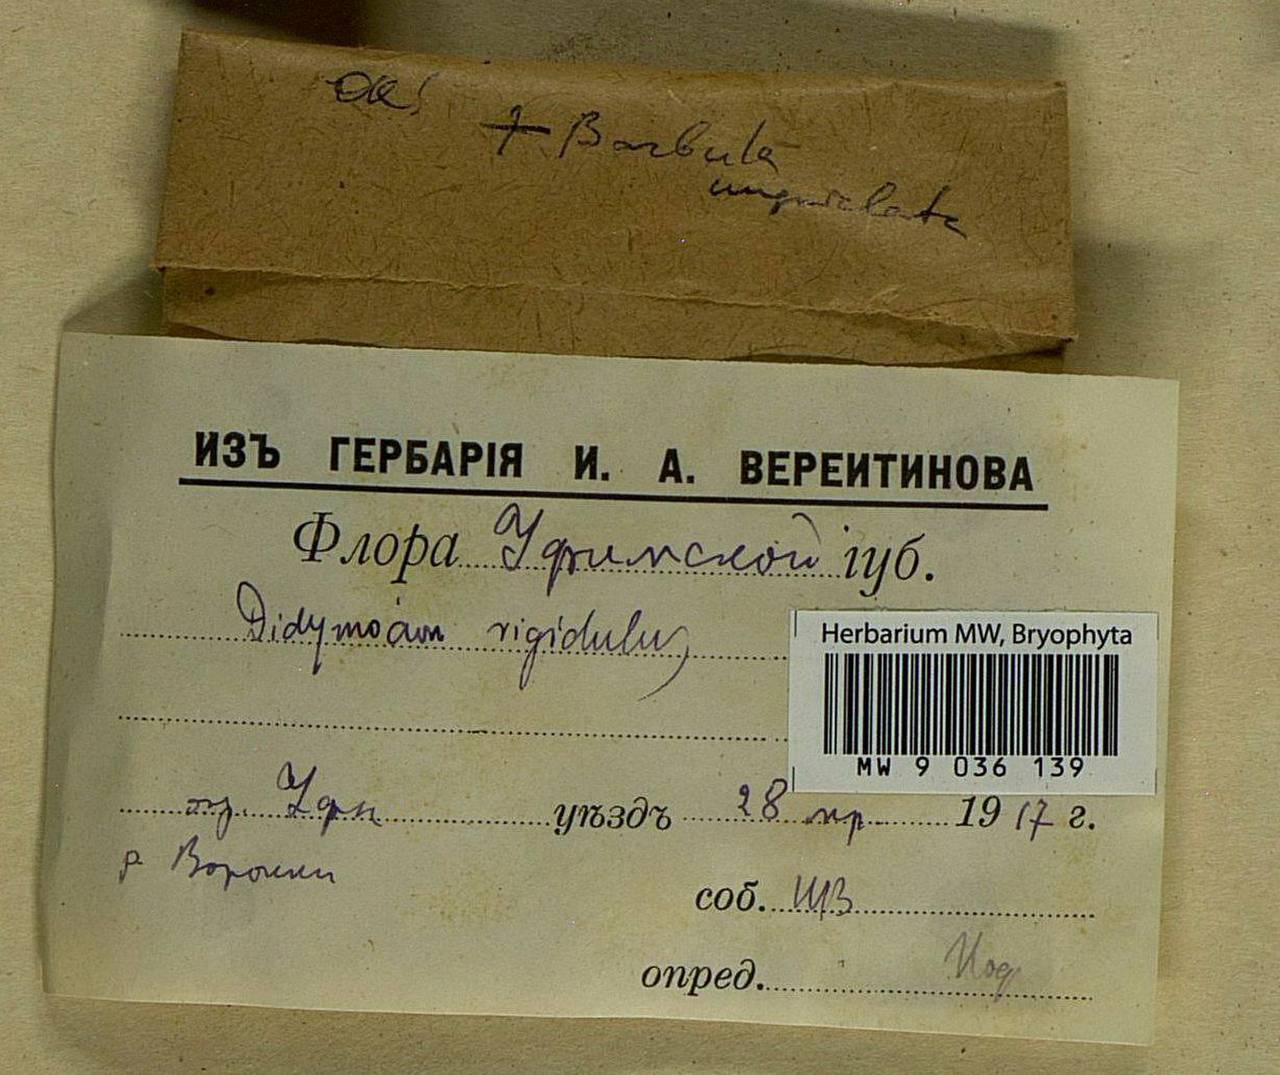 ок!
+ Barbula
unguiculata
ИЗЪ ГЕРБАРІЯ И. А. ВЕРЕИТИНОВА
Флора Уфимской губ.
Didymodon rigidulus
Herbarium MW, Bryophyta
MW 9 036 139
Уфы уѣздъ 28 1917 г.
р
соб. ИВ
опред.